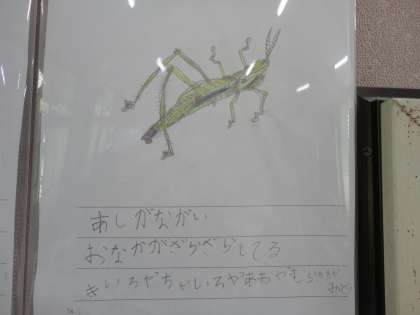 あしがながい
おなかがざらざらしてる
きいろやちゃいろやあおやむらさきが